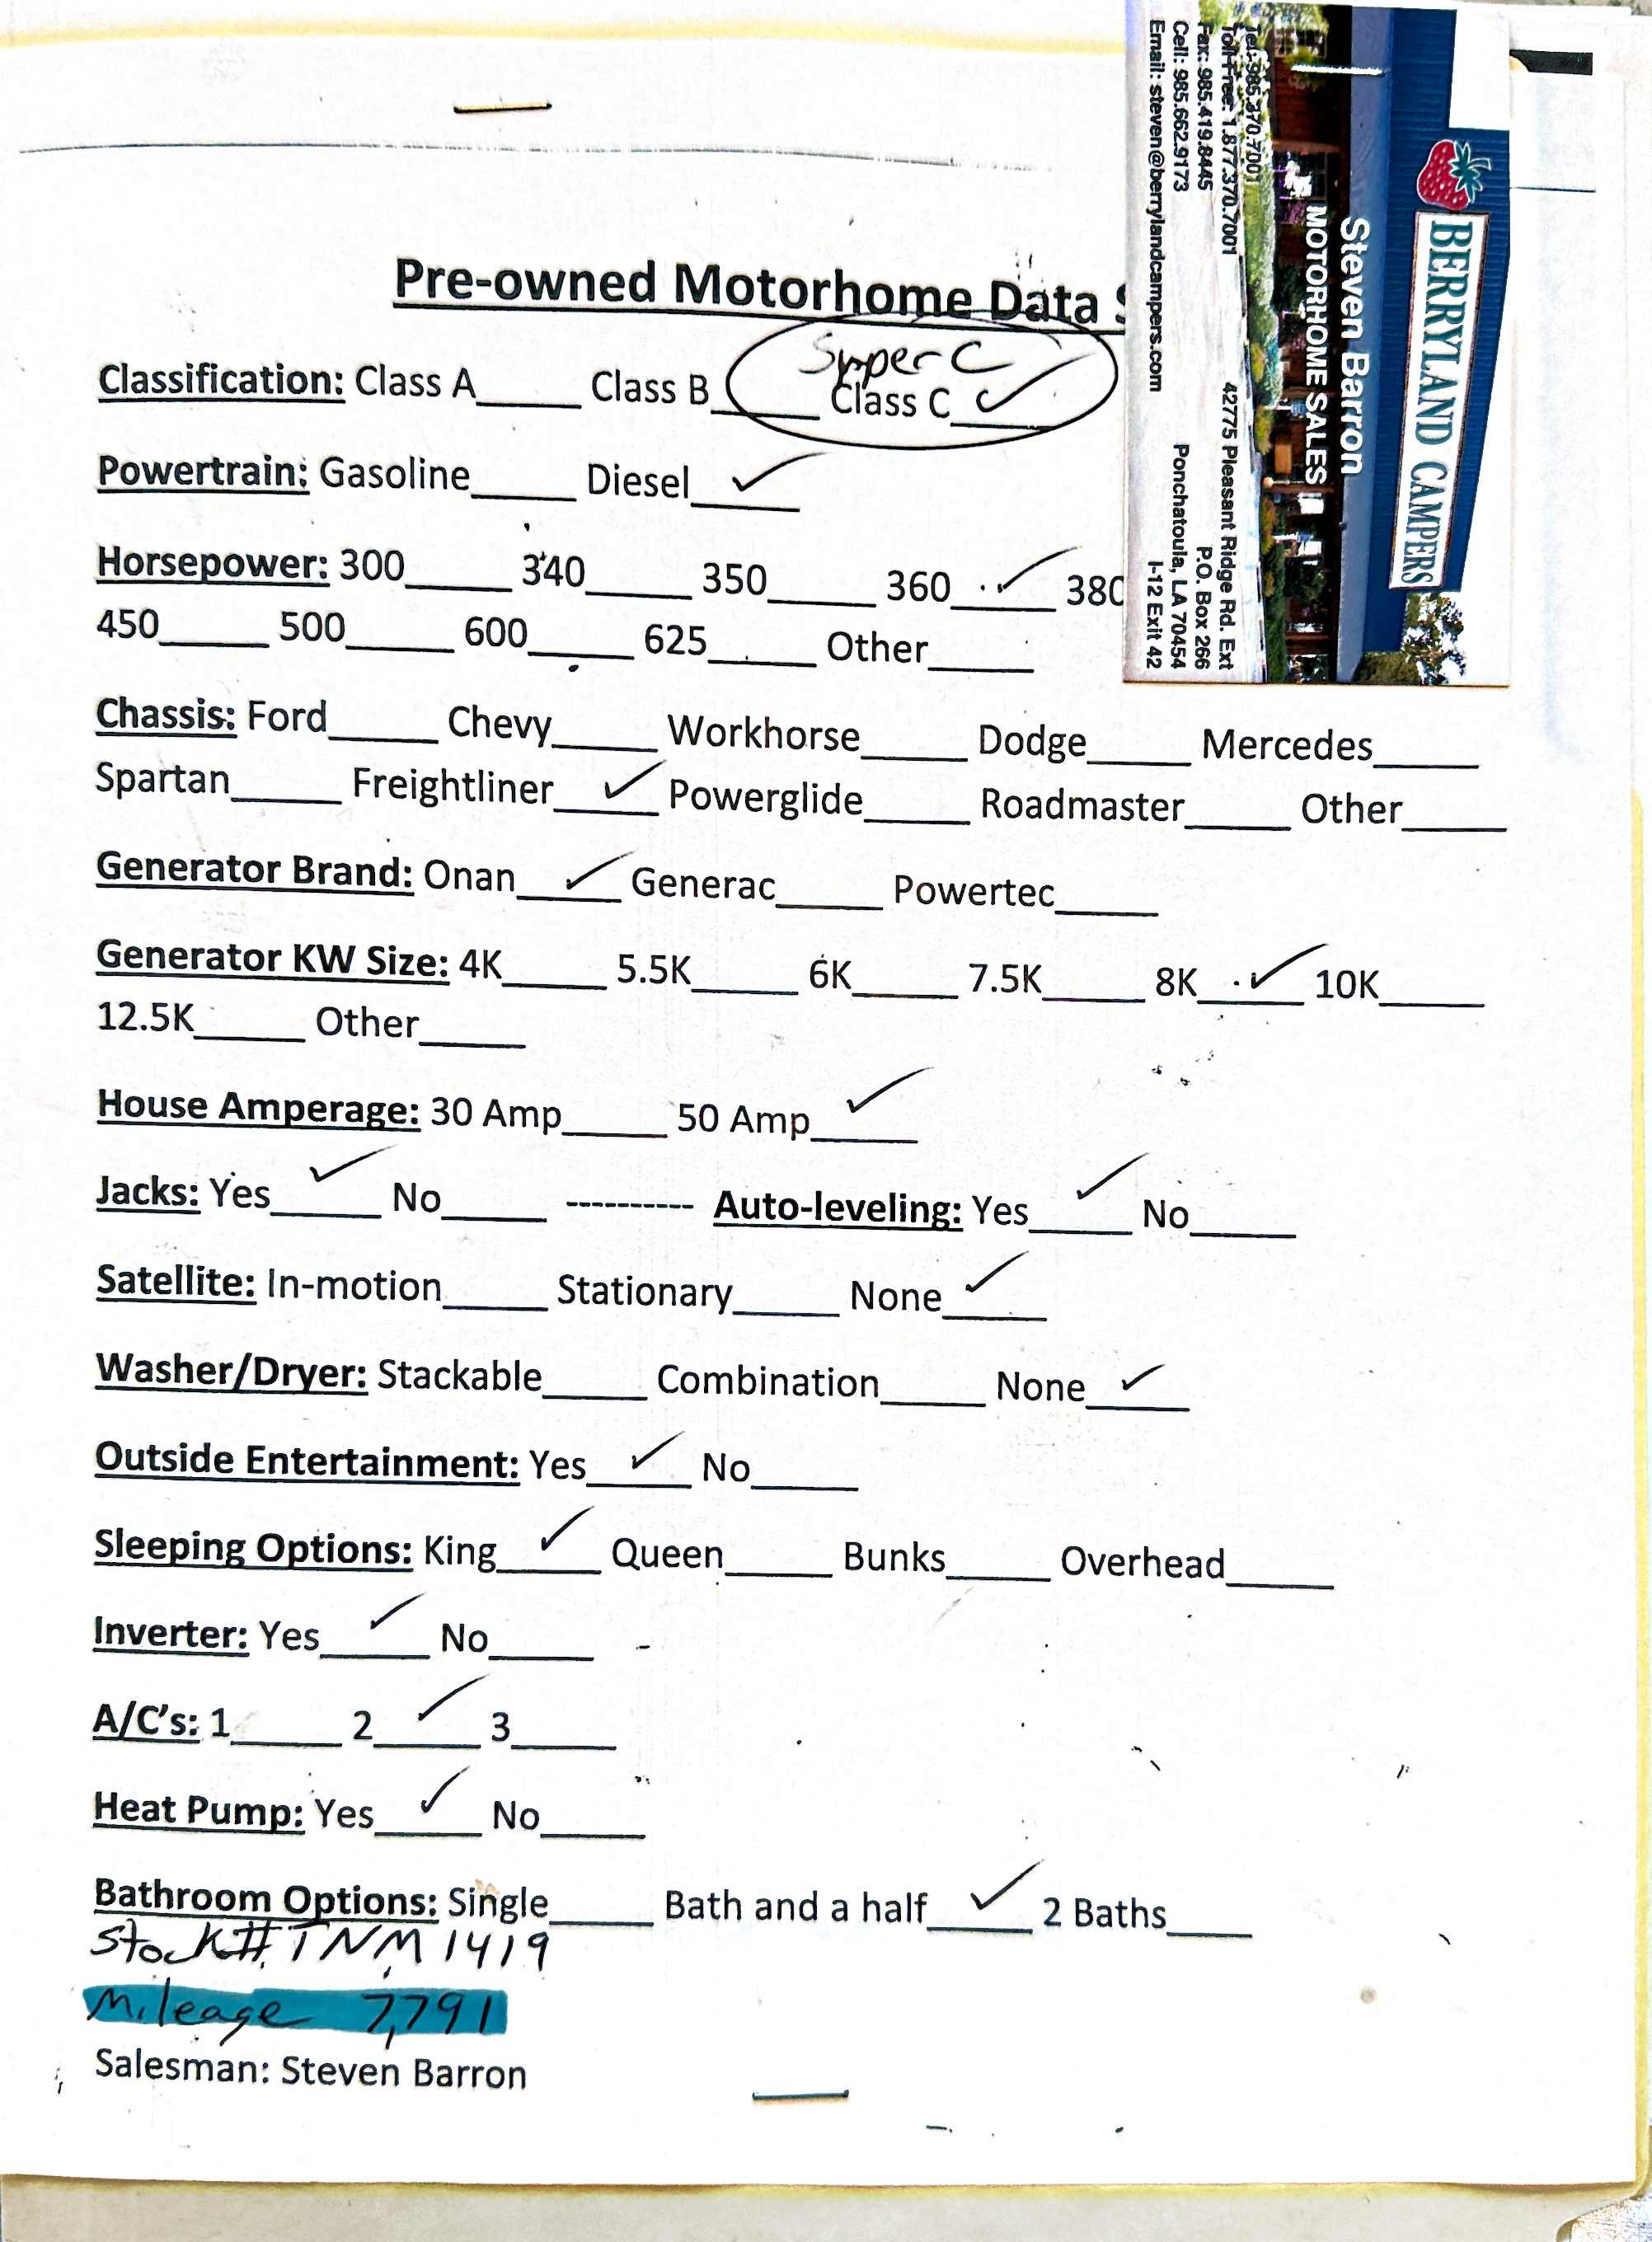 Pre-owned Motorhome Data
Super C
Classification: Class A_____ Class B_____ Class C ✓
Powertrain: Gasoline_____ Diesel ✓
Horsepower: 300_____ 340_____ 350_____ 360 ✓ 380
450_____ 500_____ 600_____ 625_____ Other_____
Chassis: Ford_____ Chevy_____ Workhorse_____ Dodge_____ Mercedes_____
Spartan_____ Freightliner ✓ Powerglide_____ Roadmaster_____ Other_____
Generator Brand: Onan ✓ Generac_____ Powertec_____
Generator KW Size: 4K_____ 5.5K_____ 6K_____ 7.5K_____ 8K ✓ 10K_____
12.5K_____ Other_____
House Amperage: 30 Amp_____ 50 Amp ✓
Jacks: Yes ✓ No_____ ---------- Auto-leveling: Yes ✓ No_____
Satellite: In-motion_____ Stationary_____ None ✓
Washer/Dryer: Stackable_____ Combination_____ None ✓
Outside Entertainment: Yes ✓ No_____
Sleeping Options: King ✓ Queen_____ Bunks_____ Overhead_____
Inverter: Yes ✓ No_____
A/C's: 1_____ 2 ✓ 3_____
Heat Pump: Yes ✓ No_____
Bathroom Options: Single_____ Bath and a half ✓ 2 Baths_____
Stock# TNM1419
Mileage 7,791
Salesman: Steven Barron
BERRYLAND CAMPERS
Steven Barron
MOTORHOME SALES
Tel: 985.370.7001
Toll-Free: 1.877.370.7001
Fax: 985.419.8445
Cell: 985.662.9173
Email: steven@berrylandcampers.com
42775 Pleasant Ridge Rd. Ext
P.O. Box 266
Ponchatoula, LA 70454
I-12 Exit 42